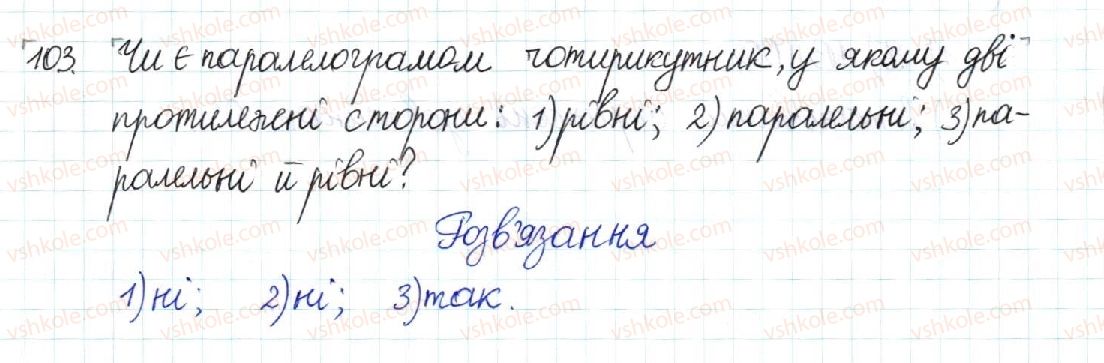 103. Чи є паралелограмом чотирикутник, у якому дві
протилежні сторони: 1) рівні; 2) паралельні; 3) па-
ралельні й рівні?
Розв'язання
1) ні; 2) ні; 3) так.